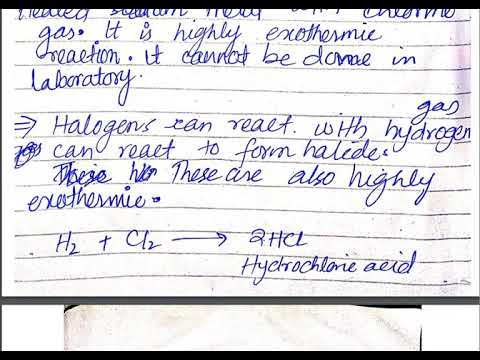 Heated sodium metal with chlorine
gas. It is highly exothermic
reaction. it cannot be donae in
laboratory.
gas
⇒ Halogens can react. with hydrogen
can react to form halide.
These are also highly
exothermic.
H₂ + Cl₂ ⟶ 2HCl
Hydrochloric acid